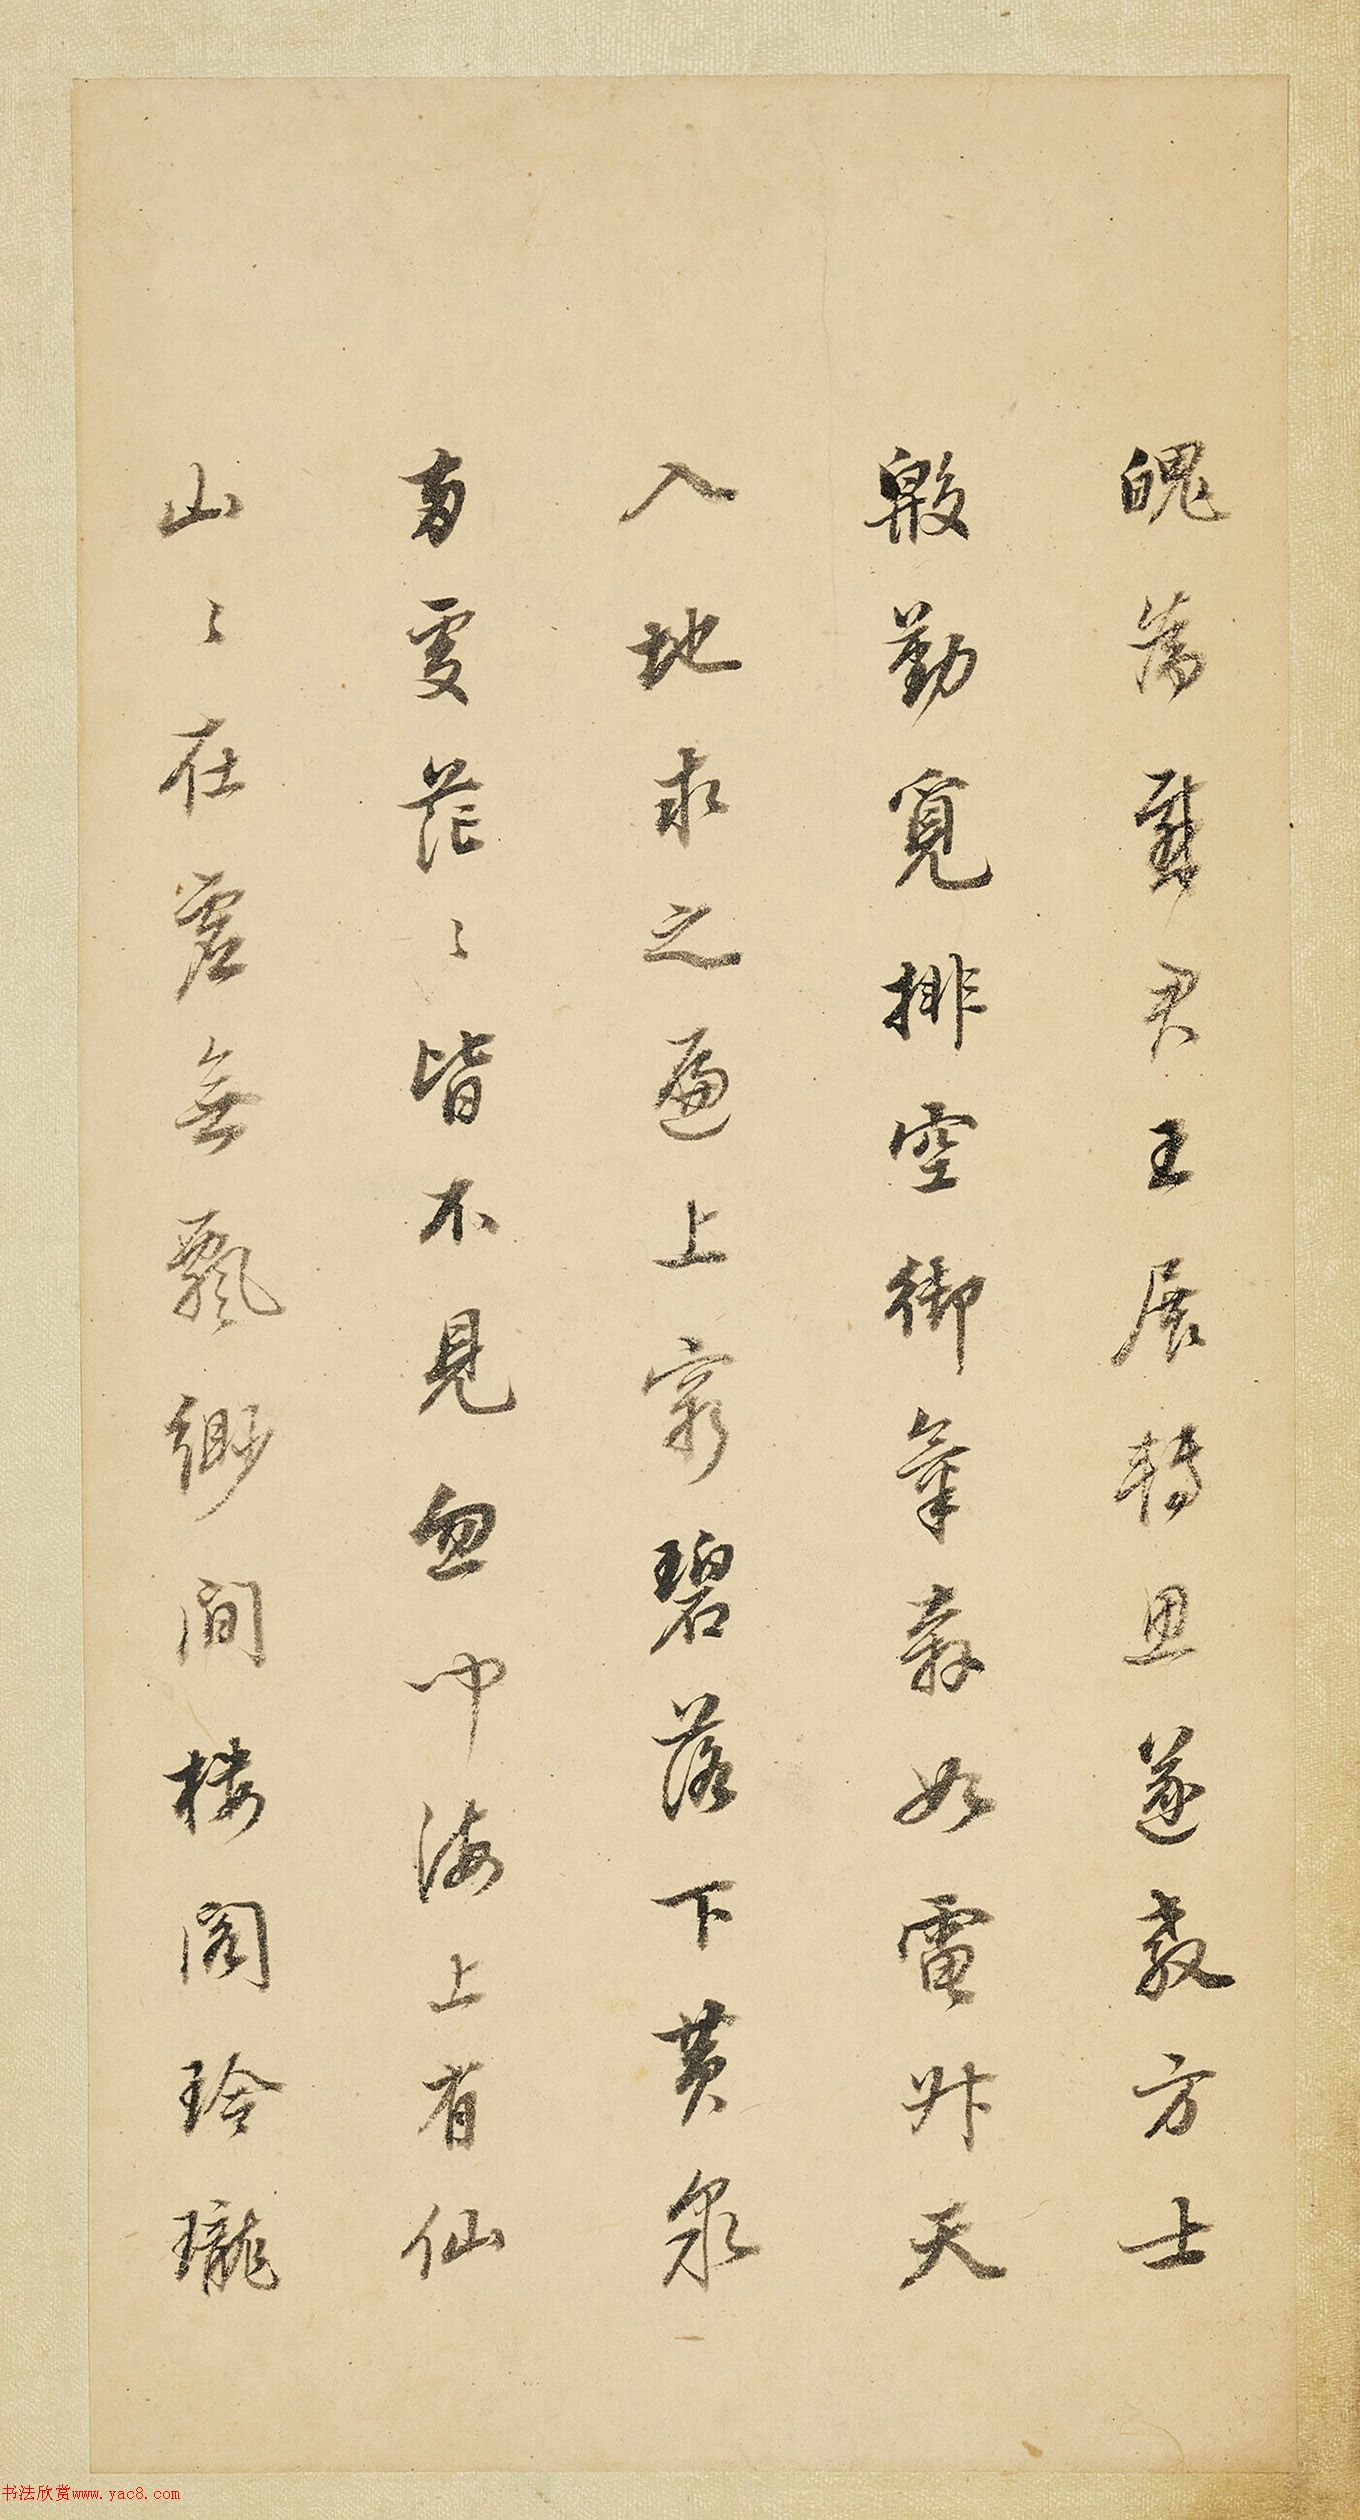 魄為感君王展轉思遂教方士
殷勤覓排空御氣奔如電升天
入地求之遍上窮碧落下黃泉
兩處茫々皆不見忽聞海上有仙
山々在虛無飄緲間樓閣玲瓏
书法欣赏www.yac8.com